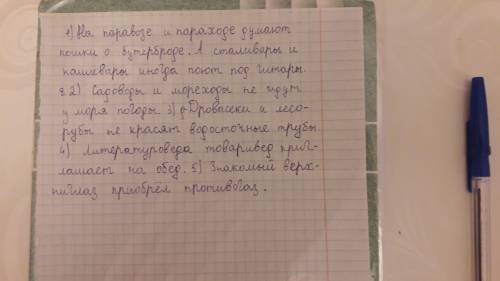 1) На паравозе и параходе думают
кошки о бутерброде. А сталивары и
кашевары иногда поют под гитары.
2) Садоводы и мореходы не ждут
у моря погоды. 3) Дровасеки и лесо-
рубы не красят водосточные трубы
4) Литературоведа товаривед приг-
лашает на обед. 5) Знакомый верх-
ниглаз приобрел противогаз.